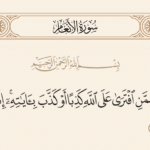 سُورَةُ الأَنْعَامِ
بِسْمِ اللَّهِ الرَّحْمَٰنِ الرَّحِيمِ
مَّنِ ٱفْتَرَىٰ عَلَى ٱللَّهِ كَذِبًا أَوْ كَذَّبَ بِـَٔايَـٰتِهِۦٓ ۗ